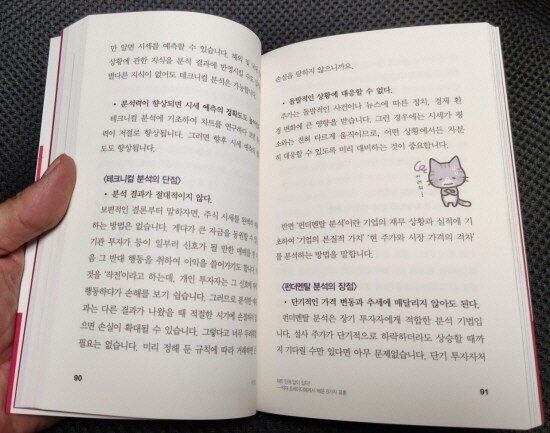 만 알면 시세를 예측할 수 있습니다. 해외 및
상황에 관한 지식을 분석 결과에 반영시킬 수도
별다른 지식이 없어도 테크니컬 분석은 가능합니다.
• 분석력이 향상되면 시세 예측의 정확도도
테크니컬 분석에 기초하여 차트를 연구하다
력이 저절로 향상됩니다. 그러면 향후 시세 예측의
도도 향상됩니다.
〈테크니컬 분석의 단점〉
• 분석 결과가 절대적이지 않다.
보편적인 결론부터 말하자면, 주식 시세를 완벽히
하는 방법은 없습니다. 게다가 큰 자금을 동원할 수
기관 투자가 등이 일부러 신호가 될 만한 매매를
음 그 반대 행동을 취하여 이익을 올리기도
것을 '작전'이라고 하는데, 개인 투자자는 그
행동하다가 손해를 보기 쉽습니다. 그러므로 분석한
과는 다른 결과가 나왔을 때 적절한 시기에 손절하지
으면 손실이 확대될 수 있습니다. 그렇다고 너무 두려워
필요는 없습니다. 미리 정해 둔 규칙에 따라 거래하면
90
손실을 당하지 않으니까요.
• 돌발적인 상황에 대응할 수 없다.
주가는 돌발적인 사건이나 뉴스에 따른 정치, 경제 환
경 변화에 큰 영향을 받습니다. 그런 경우에는 시세가 평
소와는 전혀 다르게 움직이므로, 어떤 상황에서든 차분
히 대응할 수 있도록 미리 대비하는 것이 중요합니다.
반면 '펀더멘탈 분석'이란 기업의 재무 상황과 실적에 기
초하여 '기업의 본질적 가치' '현 주가와 시장 가격의 격차'
를 분석하는 방법을 말합니다.
〈펀더멘탈 분석의 장점〉
• 단기적인 가격 변동과 추세에 매달리지 않아도 된다.
펀더멘탈 분석은 장기 투자자에게 적합한 분석 기법입
니다. 설사 주가가 단기적으로 하락하더라도 상승할 때까
지 기다릴 수만 있다면 아무 문제없습니다. 단기 투자자처
91